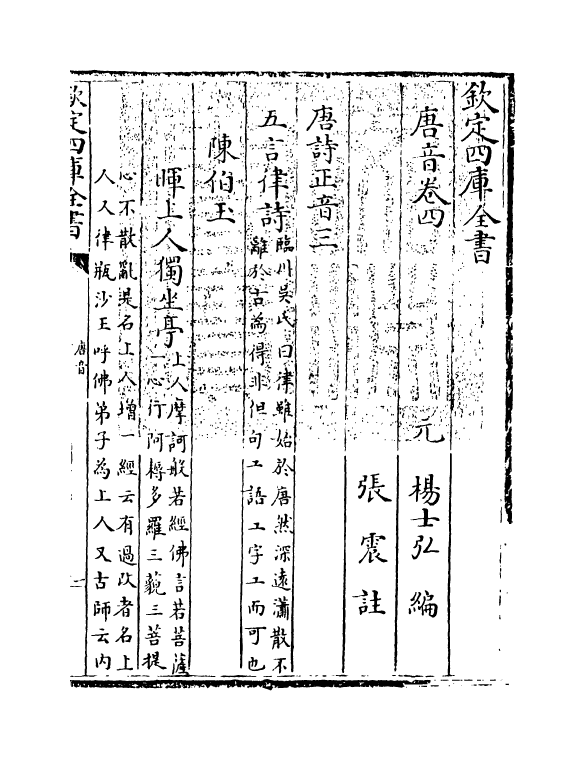 欽定四庫全書
唐音卷四
元 楊士弘 編
張震 註
唐詩正音三
五言律詩臨川吳氏曰律雖始於唐然深遠瀟散不
離於古為得非但句工語工字工而可也
陳伯玉
暉上人獨坐亭上人摩訶般若經佛言若菩薩
一心行阿耨多羅三藐三菩提
心不散亂是名上人增一經云有過改者名上
人又律瓶沙王呼佛弟子為上人又古師云内
欽定四庫全書
唐音
一